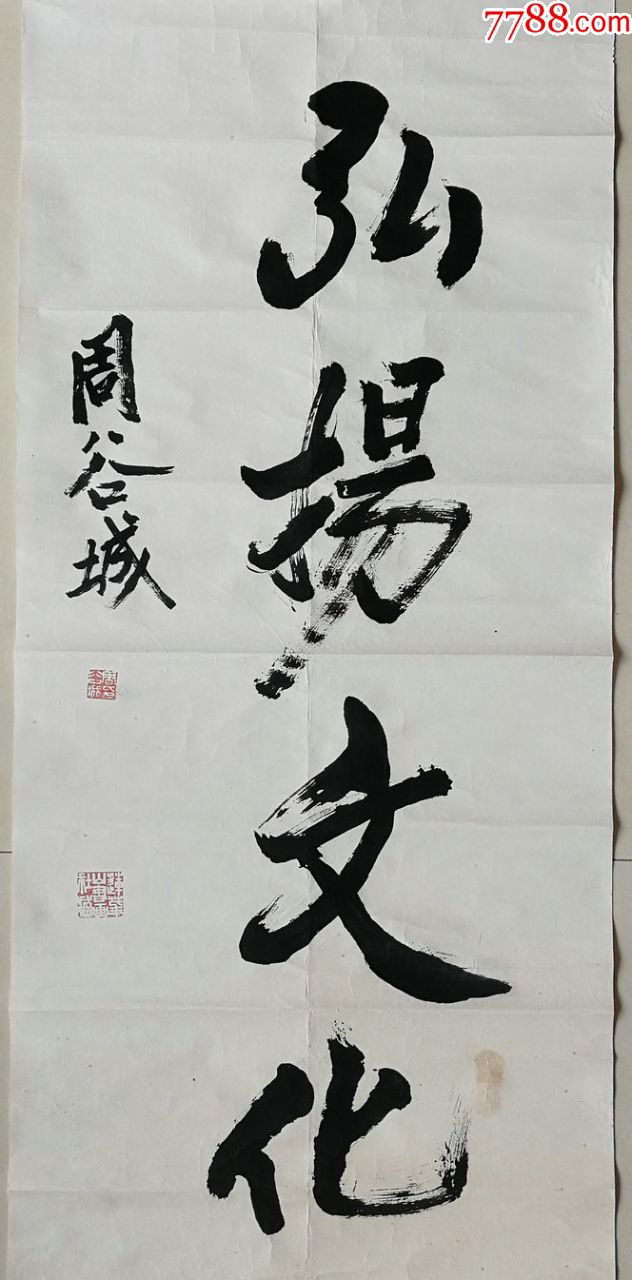 7788.com
弘揚文化
周谷城